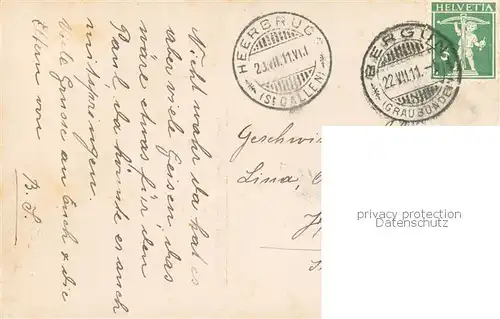 Nicht wahr da hat es
aber viele Geisen; das
wäre etwas für den
Paul, da könnte es auch
mitspringen.
Viele Grüsse an Euch & die
Eltern von
B. S.
HEERBRUGG
23.VII.11.VII
(ST GALLEN)
BERGÜN
22.VII.11.
(GRAUBÜNDEN)
HELVETIA
5
Geschwis
Lina,
privacy protection
Datenschutz